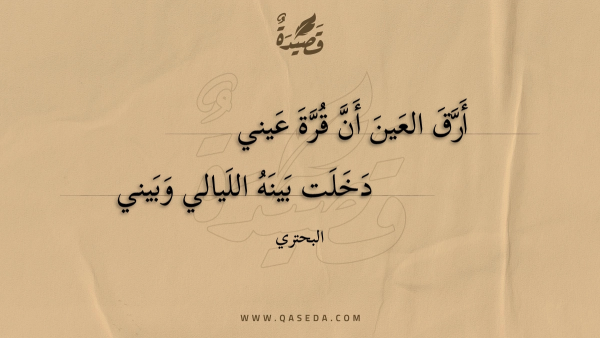 قَصِيدَةٌ
أَرَّقَ العَينَ أَنَّ قُرَّةَ عَيني
دَخَلَت بَينَهُ اللَيالي وَبَيني
البحتري
WWW.QASEDA.COM